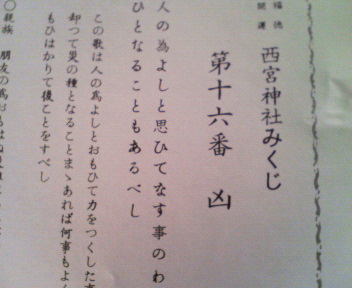 福徳
開運
西宮神社みくじ
第十六番 凶
人の為よしと思ひてなす事のわ
ひとなることもあるべし
この歌は人の爲よしとおもひて力をつくした事
却つて災の種となることまゝあれば何事もよく
もひはかりて後ことをすべし
○親族 朋友の爲おもはぬ